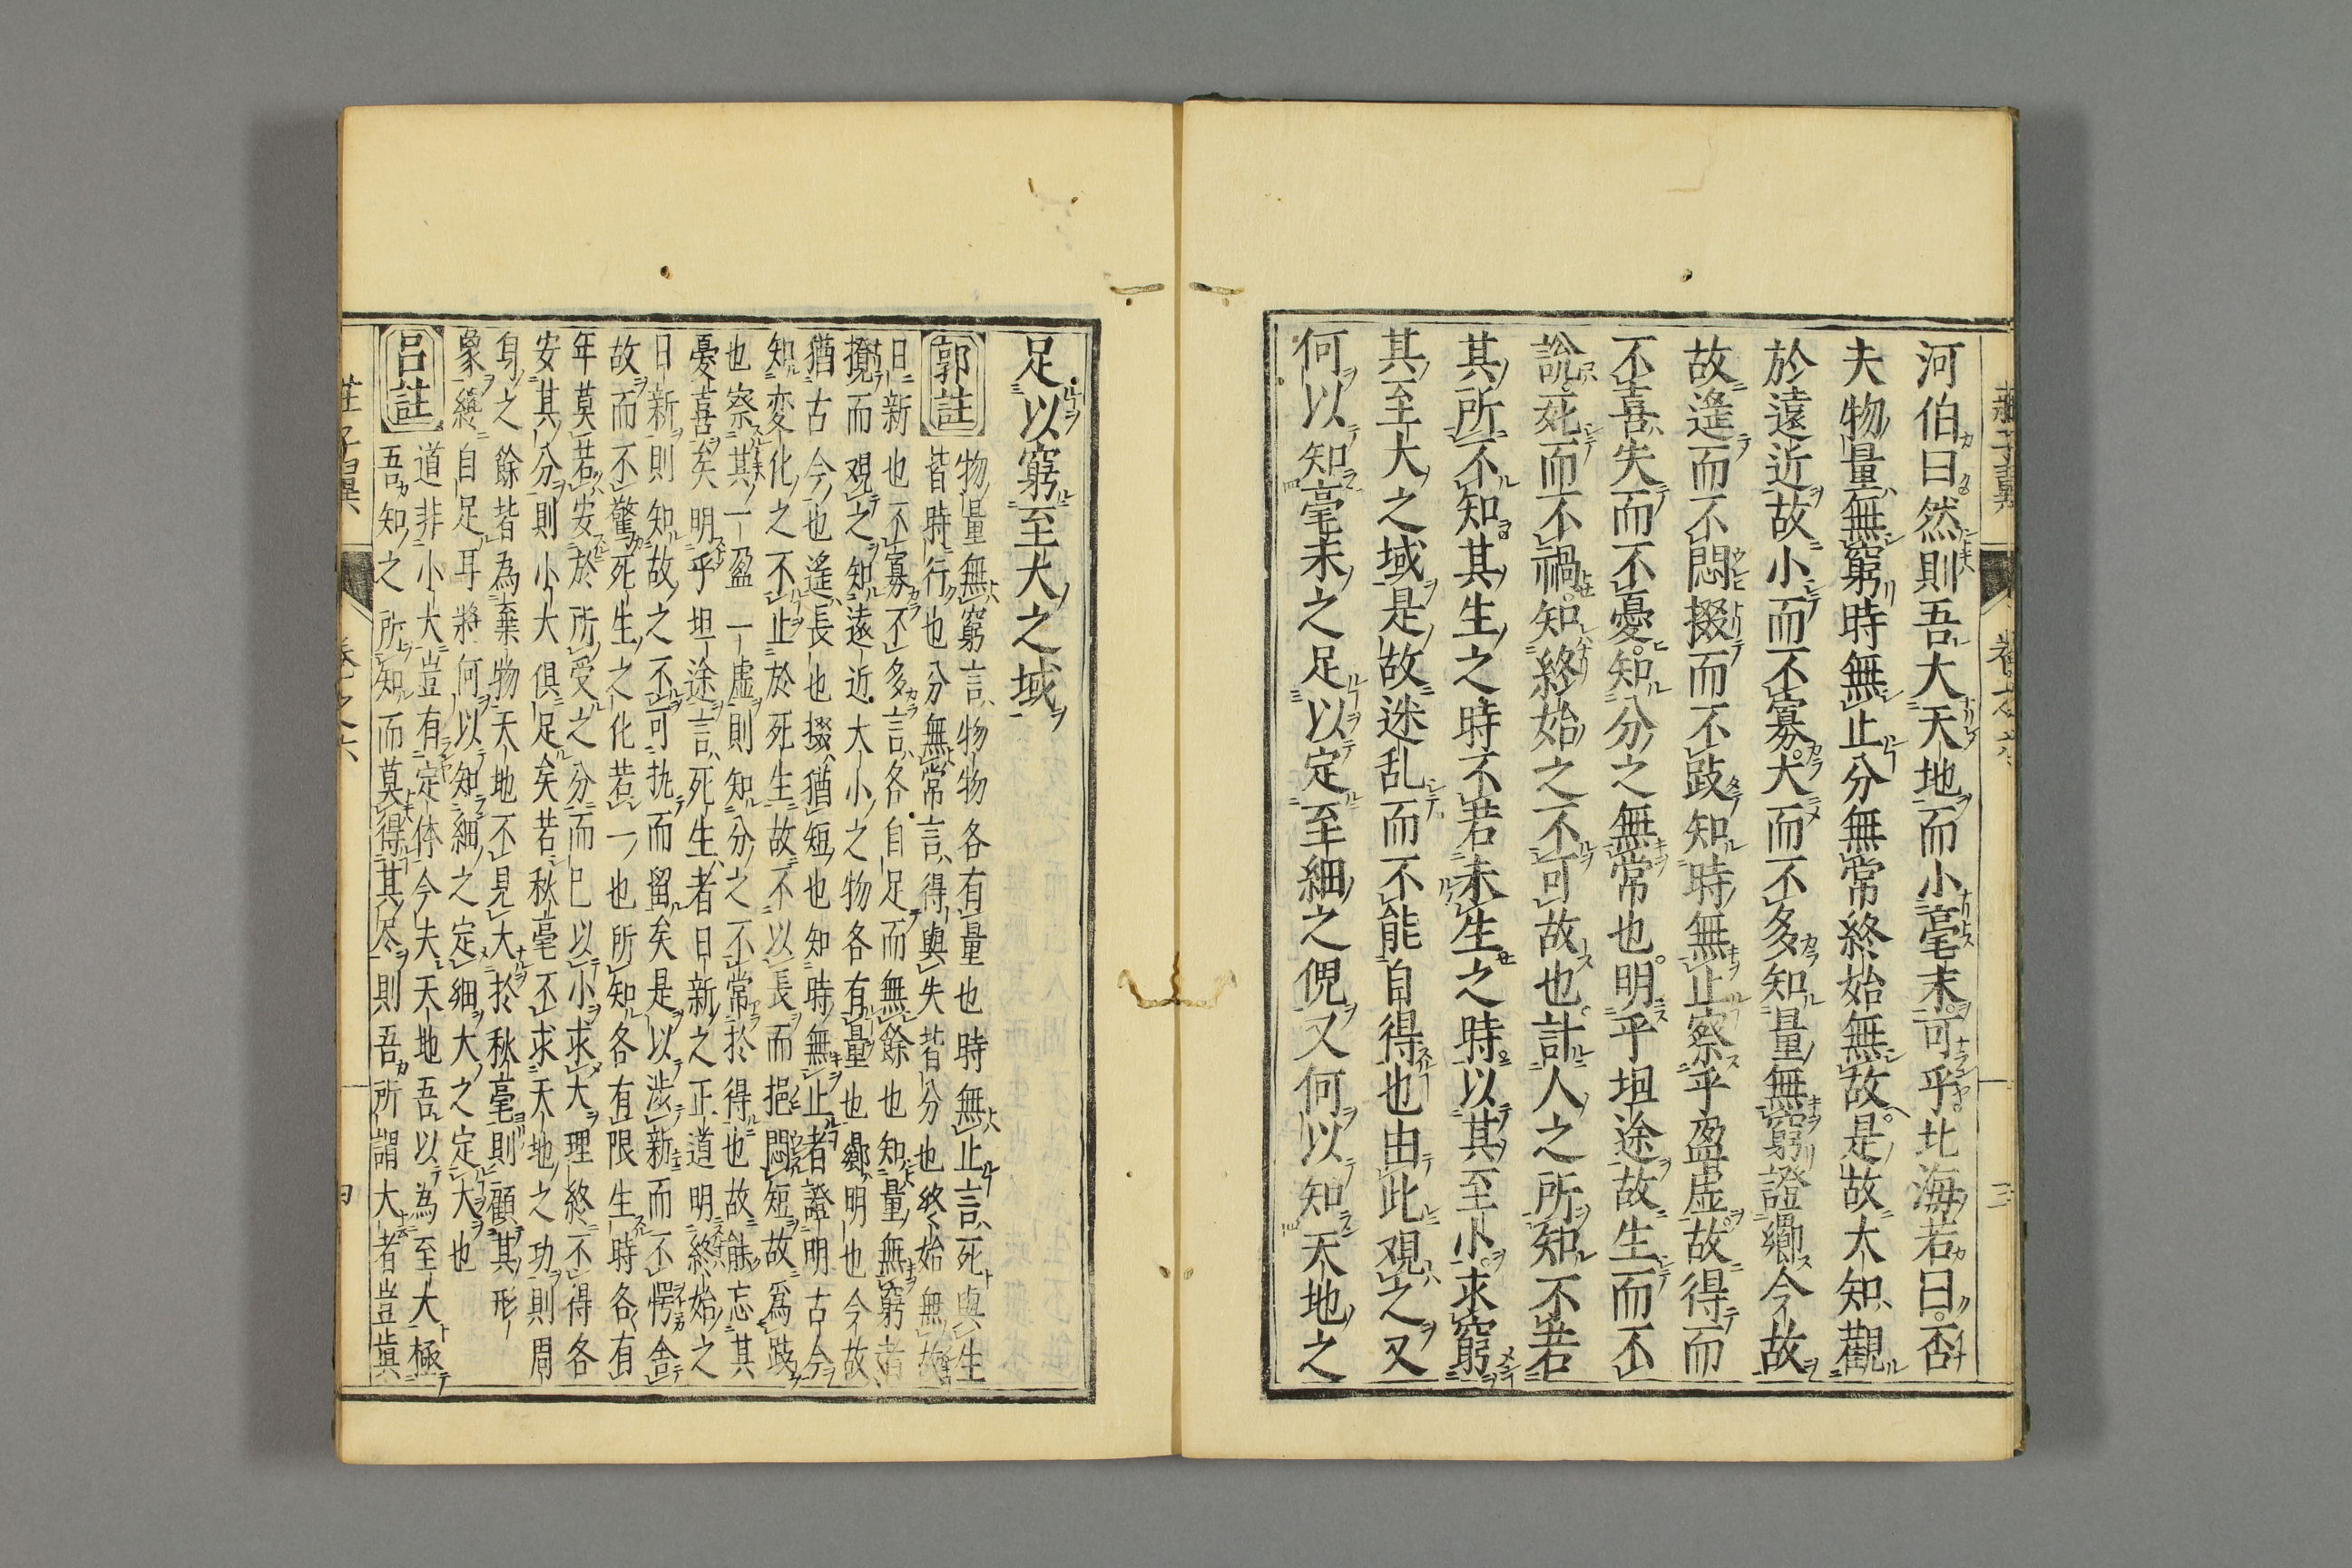 河伯曰然則吾大天地而小毫末可乎北海若曰否
夫物量無窮時無止分無常終始無故是故大知觀
於遠近故小而不寡大而不多知量無窮證曏今故
故遙而不悶掇而不跂知時無止察乎盈虛故得而
不喜失而不憂知分之無常也明乎坦途故生而不
說死而不禍知終始之不可故也計人之所知不若
其所不知其生之時不若未生之時以其至小求窮
其至大之域是故迷乱而不能自得也由此觀之又
何以知毫末之足以定至細之倪又何以知天地之
足以窮至大之域
郭註
物量無窮言物物各有量也時無止言死與生
皆時行也分無常言得與失皆分也終始無故
日新也不寡不多言各自足而無餘也知量無窮者
攬而觀之知遠近大小之物各有量也曏明也今故
猶古今也遙長也掇猶短也知時無止者證明古今
知変化之不止於死生故不以長而悒悶短故為跂
也察其一盈一虛則知分之不常於得也故能忘其
憂喜矣明乎坦途言死生者日新之正道明終始之
日新則知故之不可執而留矣是以涉新而不愕舍
故而不驚死生之化若一也所知各有限生時各有
年莫若安於所受之分而已以小求大理終不得各
安其分則小大俱足矣若秋毫不求天地之功則周
身之餘皆為棄物天地不見大於秋毫則顧其形
象纔自足耳將何以知細之定細大之定大也
呂註
道非小大豈有定体今夫天地吾以為至大極
吾知之所知而莫得其尽則吾所謂大者豈真
莊子翼
卷之六
三
莊子翼
卷之六
四